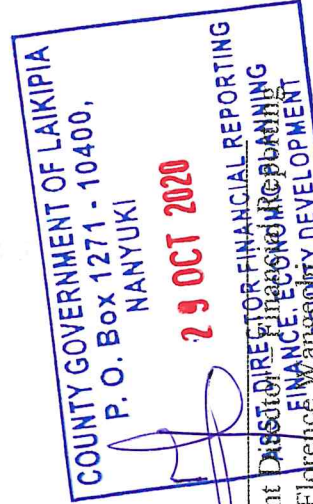 COUNTY GOVERNMENT OF LAIKIPIA
P. O. Box 1271 - 10400,
NANYUKI
29 OCT 2020
ASST. DIRECTOR FINANCIAL REPORTING
FINANCE, ECONOMIC PLANNING
DEVELOPMENT
nt Director – Financial Reporting
Florence Wangechi